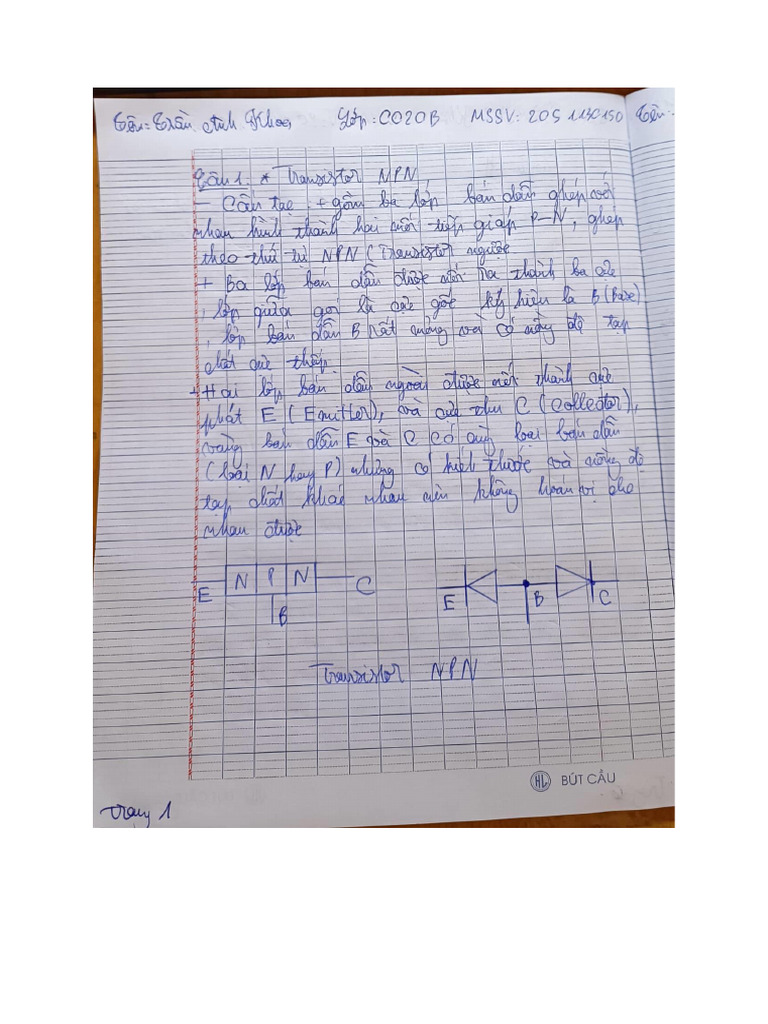 Tên: Trần Anh Khoa Lớp: CO20B MSSV: 205 Tên:
Câu 1. * Transistor NPN
- Cấu tạo: + gồm ba lớp bán dẫn ghép với
nhau hình thành hai mối tiếp giáp P-N, ghép
theo thứ tự NPN (Transistor ngược
+ Ba lớp bán dẫn được nối ra thành ba cực
, lớp giữa gọi là cực gốc ký hiệu là B (Base)
, lớp bán dẫn B rất mỏng và có nồng độ tạp
chất cực thấp.
+ Hai lớp bán dẫn ngoài được nối thành cực
phát E (Emitter), và cực thu C (Collector),
vùng bán dẫn E và C có cùng loại bán dẫn
(loại N hay P) nhưng có kích thước và nồng độ
tạp chất khác nhau nên không hoán vị cho
nhau được
E N P N C
B
E B C
Transistor NPN
HL BÚT CẦU
Trang 1